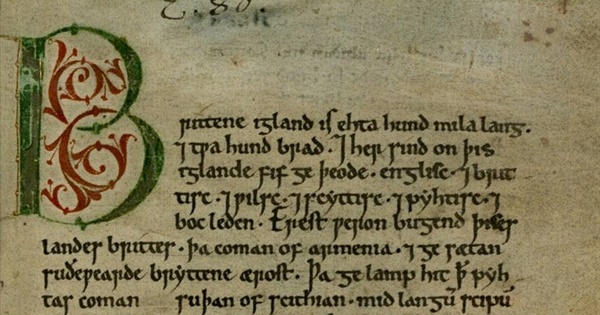 E. 80.
Brittene igland is ehta hund mila lang.
⁊ tƿa hund brad. ⁊ her sind on þis
iglande fif ge þeode. englisc. ⁊ brit
tisc. ⁊ ƿilsc. ⁊ scyttisc. ⁊ pyhtisc. ⁊
boc leden. Erest ƿeron bugend þises
landes brittes. þa coman of armenia. ⁊ ge sætan
suðeƿearde bryttene ærost. Þa ge lamp hit þ̄ pyh
tas coman suþan of scithian. mid langū scipū